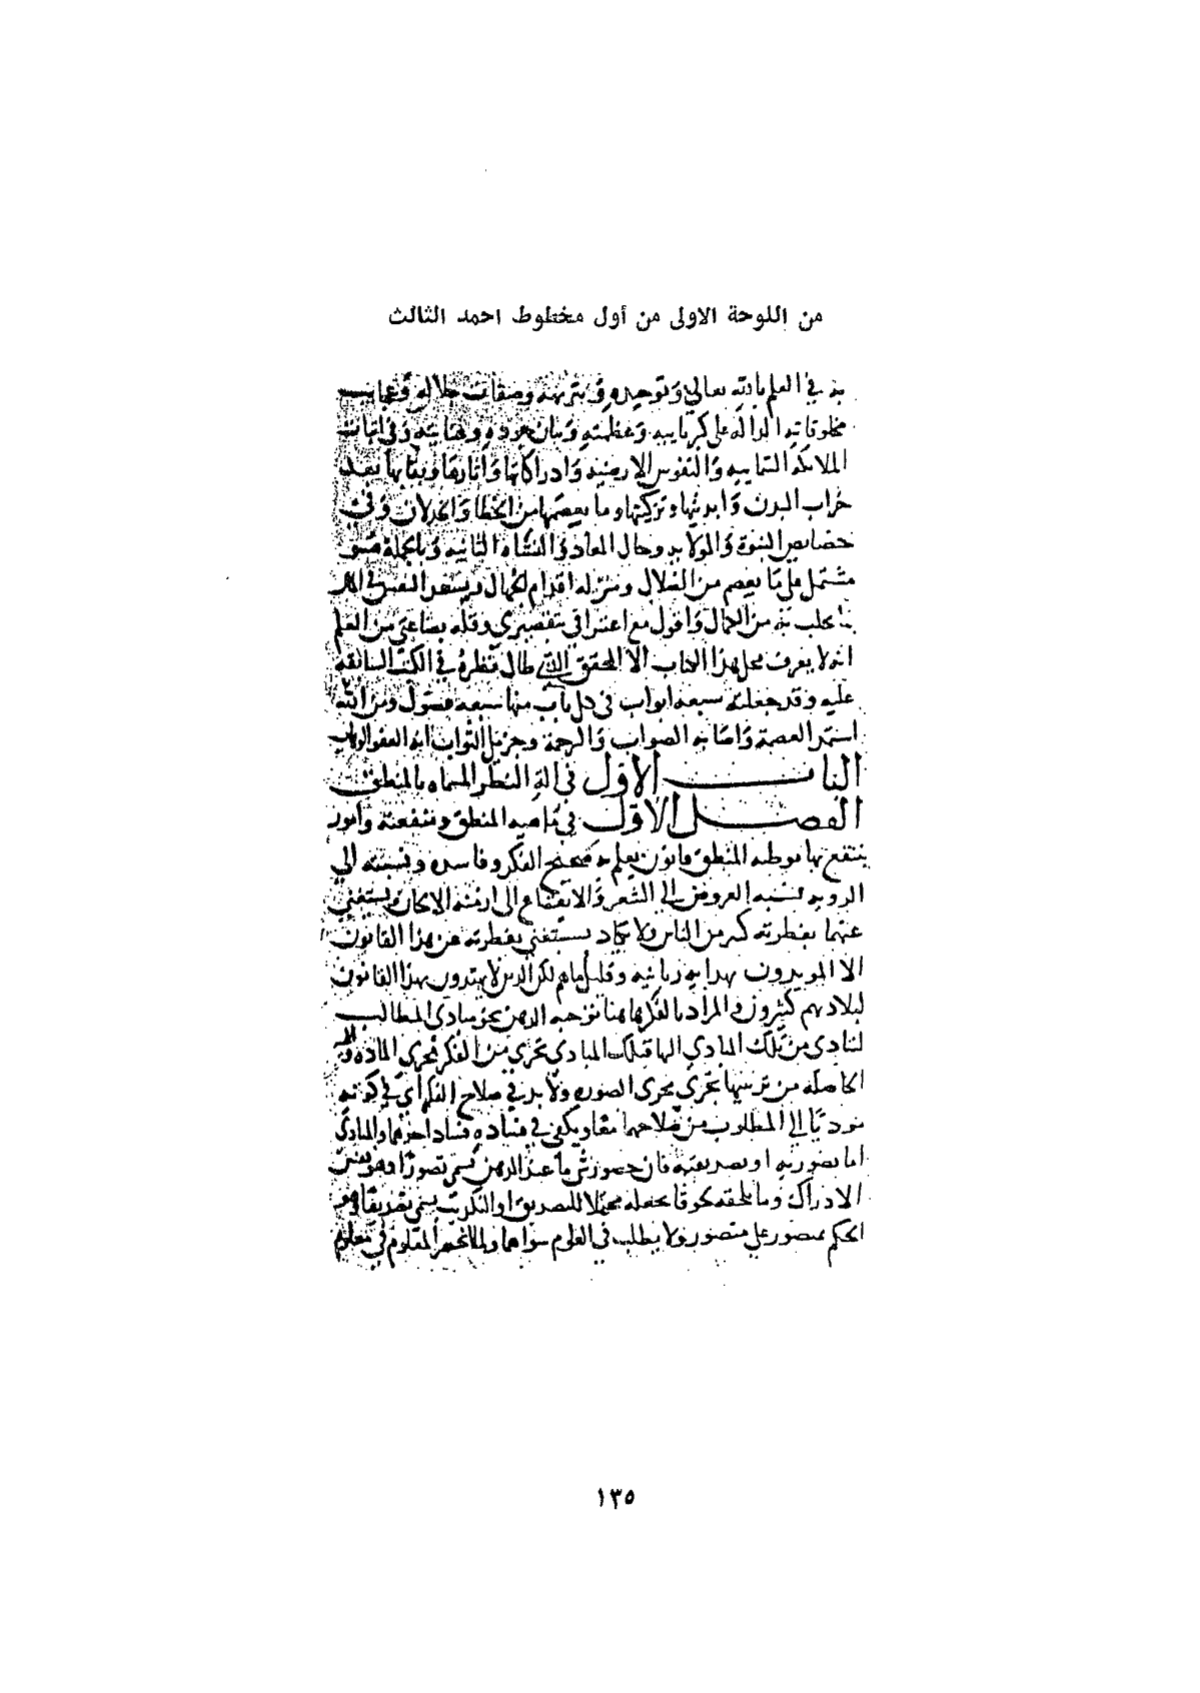 من اللوحة الاولى من أول مخطوط احمد الثالث
في العلم بالله تعالى وتوحيده وتنزيهه وصفات جلاله وعجايب
مخلوقاته الدالة على كبريايه وعظمته وبيان جوده وعنايته وفي اثبات
الملائكة السماييه والنفوس الارضيه وادراكاتها واثارها وبقايها بعد
خراب البدن وابديتها وتزكيتها وما يعصمها من الخطا والخذلان وفي
خصايص النبوة والمولايد وحال المعاد والنشاة الثانيه وبالجملة فهو
مشتمل على ما يعصم من الضلال ومزلة اقدام الجهال ويسعد النفس في
من الكمال واقول مع اعترافي بتقصيري وقلة بضاعتي من العلم
انه لا يعرف محل هذا الكتاب الا المحقق الذي طال نظره في الكتب السابقة
عليه وقد جعلته سبعة ابواب في كل باب منها سبعة فصول ومن الله
استمد العصمة واصابة الصواب والرحمة وجزيل الثواب انه العفو الوهاب
الباب الاول في الة النظر المسماه بالمنطق
الفصل الاول في ماهيه المنطق ومنفعته وامور
ينتفع بها موطئه المنطق قانون يعلم به صحيح الفكر وفاسده ونسبته الى
الرويه كنسبه العروض الى الشعر والايقاع الى ازمنه الالحان ويستغني
عنهما بفطرته كثير من الناس ولا يكاد يستغني بفطرته عن هذا القانون
الا المويدون بهدايه ربانيه وقليل ما هم لكن الذين لا يهتدون بهذا القانون
لبلادتهم كثيرون والمراد بالفكر هاهنا توجه الذهن نحو مبادي المطالب
لتادى من تلك المبادي اليها فتلك المبادي تجري من الفكر مجرى المادة والهيئة
الحاصله من ترتيبها تجري مجرى الصوره ولا بد في صلاح الفكر اي في كونه
موديا الى المطلوب من صلاحهما معا ويكفي في فساده فساد احدهما والمبادي
اما تصوريه او تصديقيه فان حضور شي ما عند الذهن يسمى تصورا وهو نفس
الادراك وما يلحقه لحوقا يجعله محتملا للتصديق او التكذيب يسمى تصديقا وهو
الحكم بمتصور على متصور ولا يطلب في العلوم سواهما ولما انحصر المعلوم في معلوم
١٣٥